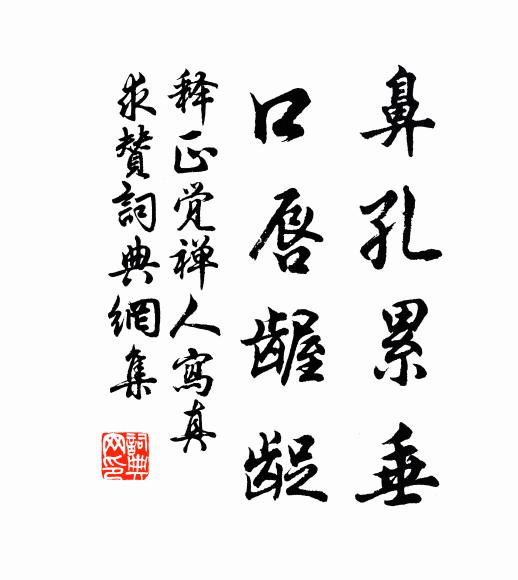 鼻孔累垂
口唇龌龊
释正觉禅人寫真
求赞詞典網集
詞典网印